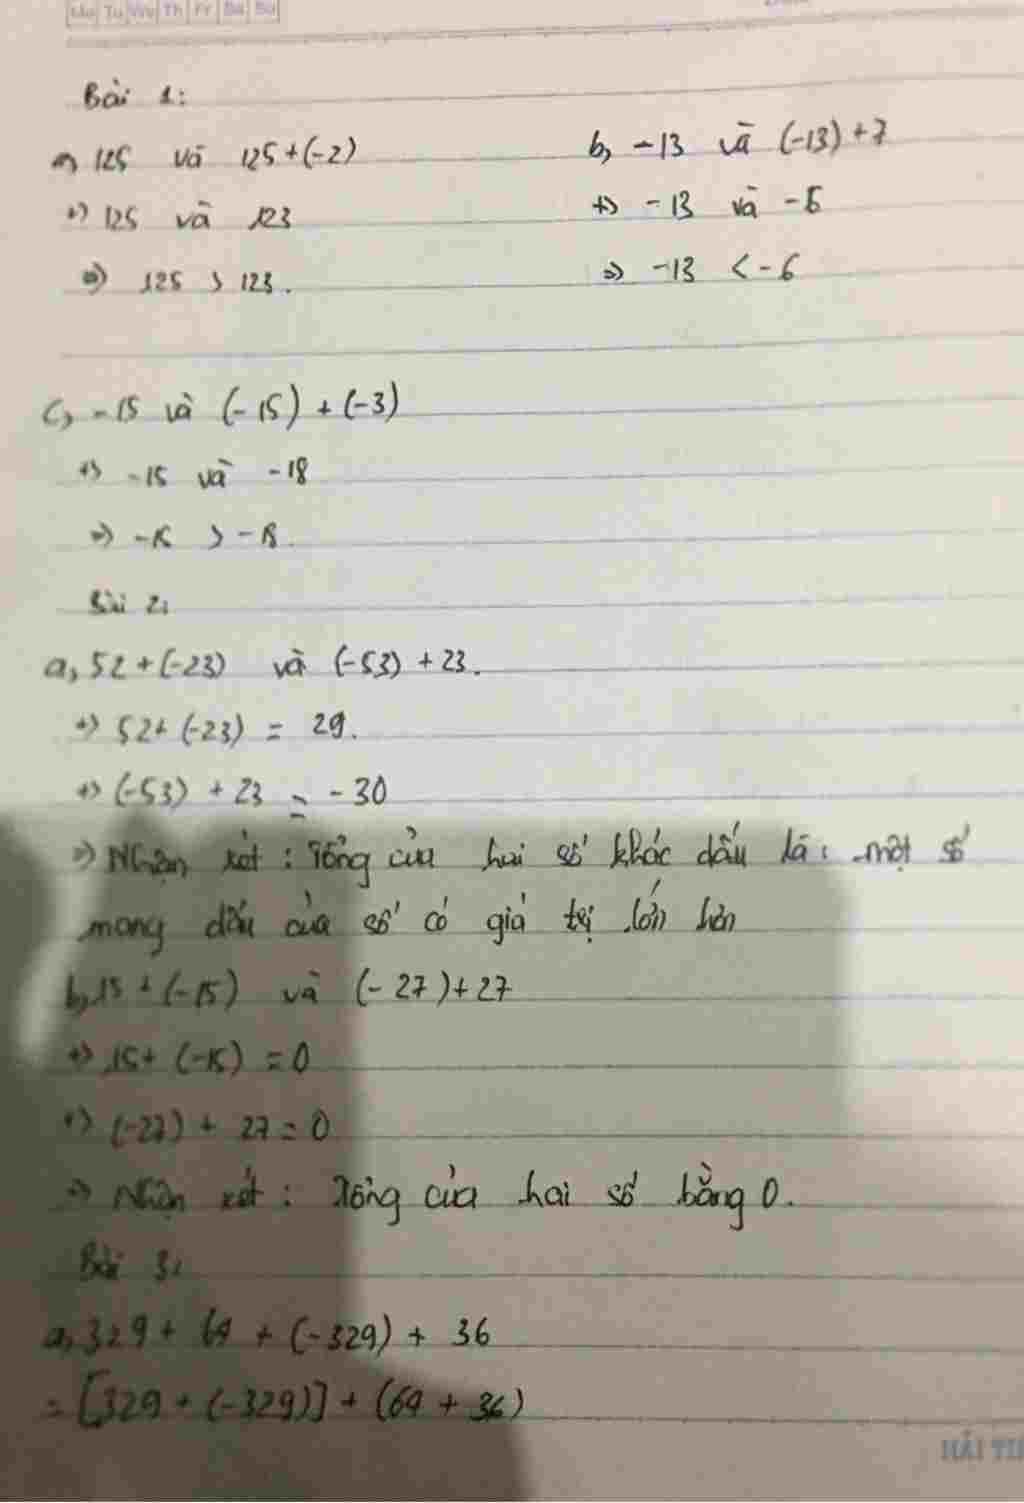 Mo Tu We Th Fr Sa Su
Bài 1:
a, 125 và 125+(-2)
b, -13 và (-13)+7
+) 125 và 123
+) -13 và -6
=) 125 > 123.
=) -13 < -6
c, -15 và (-15) + (-3)
+) -15 và -18
=) -15 > -18.
Bài 2:
a, 52+(-23) và (-53) + 23.
+) 52+ (-23) = 29.
+) (-53) + 23 = -30
=) Nhận xét : Tổng của hai số khác dấu là: một số
mang dấu của số có giá trị lớn hơn
b, 15 + (-15) và (-27)+27
+) 15+ (-15) = 0
+) (-27) + 27 = 0
=) Nhận xét : Tổng của hai số bằng 0.
Bài 3:
a, 329 + 64 + (-329) + 36
= [329 + (-329)] + (64 + 36)
HẢI TI